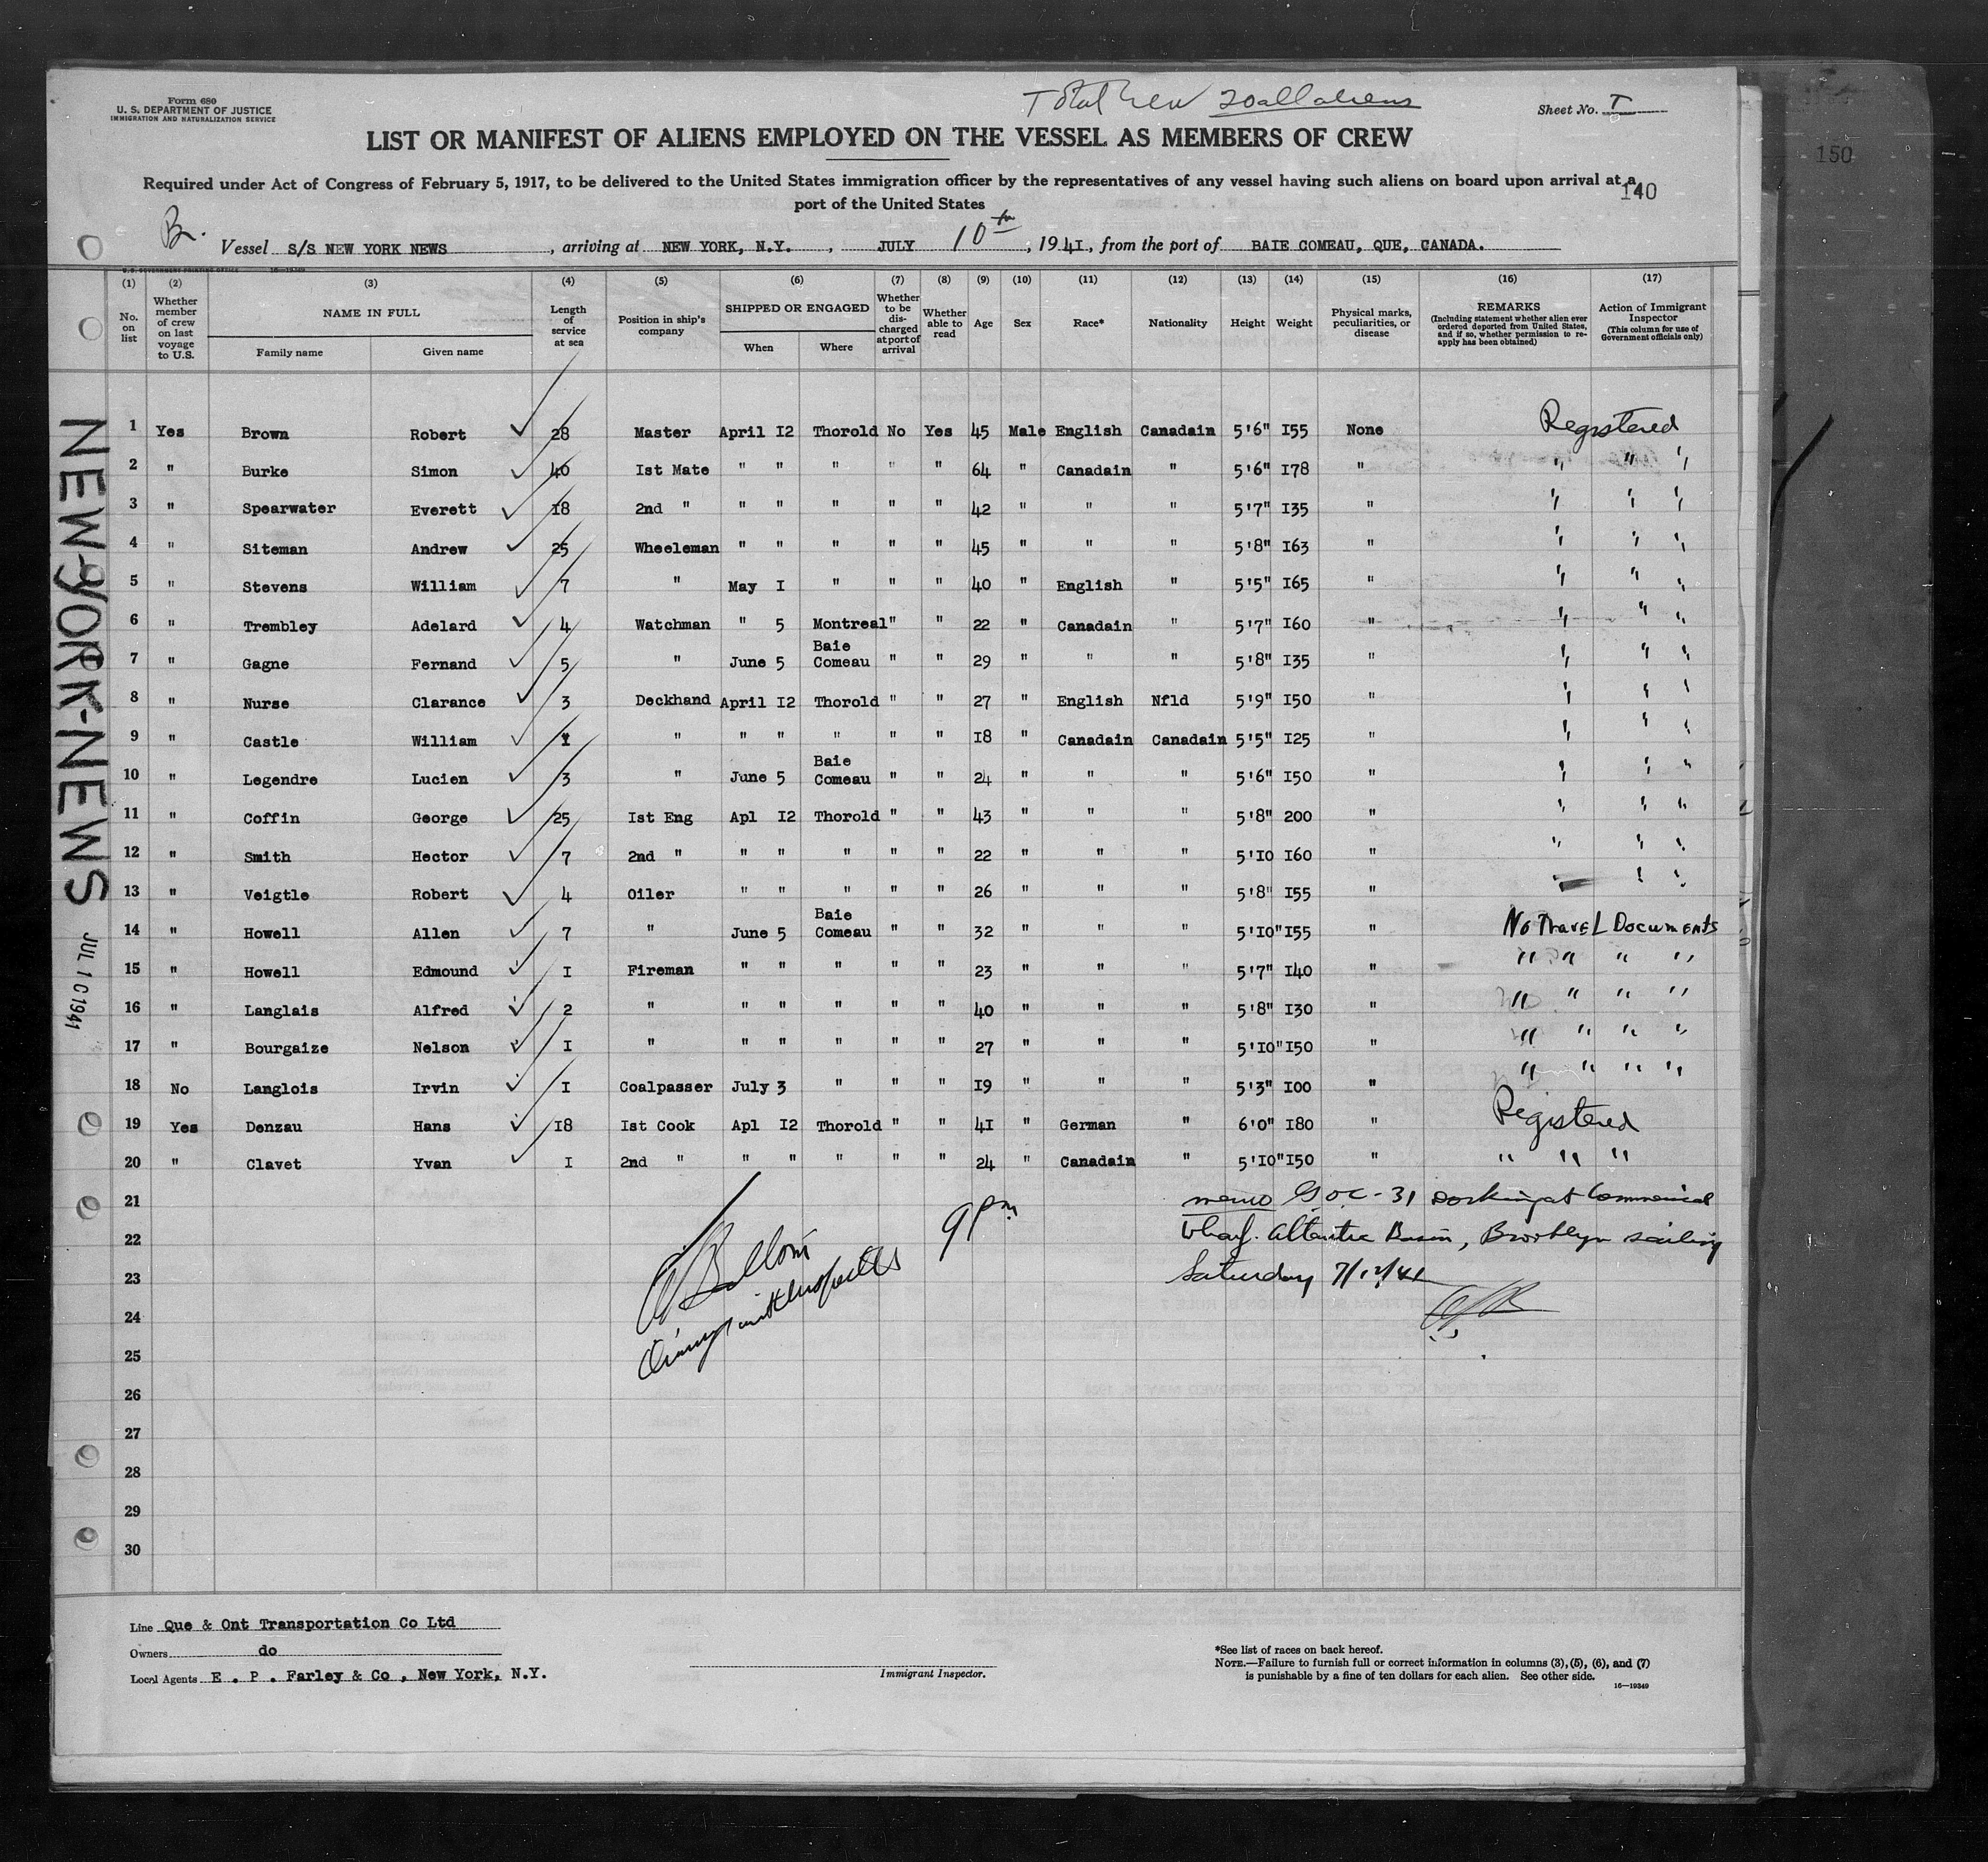 Form 680
U. S. DEPARTMENT OF JUSTICE
IMMIGRATION AND NATURALIZATION SERVICE
Total Crew 20 all aliens
Sheet No. I
150
LIST OR MANIFEST OF ALIENS EMPLOYED ON THE VESSEL AS MEMBERS OF CREW
Required under Act of Congress of February 5, 1917, to be delivered to the United States immigration officer by the representatives of any vessel having such aliens on board upon arrival at a
port of the United States
140
Br. Vessel S/S NEW YORK NEWS, arriving at NEW YORK, N.Y., JULY 10th, 1941, from the port of BAIE COMEAU, QUE, CANADA.
U.S. GOVERNMENT PRINTING OFFICE 16—19349
(1) (2) (3) (4) (5) (6) (7) (8) (9) (10) (11) (12) (13) (14) (15) (16) (17)
No. on list
Whether member of crew on last voyage to U.S.
NAME IN FULL
Family name Given name
Length of service at sea
Position in ship's company
SHIPPED OR ENGAGED
When Where
Whether to be discharged at port of arrival
Whether able to read
Age
Sex
Race*
Nationality
Height
Weight
Physical marks, peculiarities, or disease
REMARKS
(Including statement whether alien ever ordered deported from United States, and if so, whether permission to re-apply has been obtained)
Action of Immigrant Inspector
(This column for use of Government officials only)
NEW-YORK-NEWS JUL 10 1941
1 Yes Brown Robert 28 Master April I2 Thorold No Yes 45 Male English Canadain 5'6" I55 None Registered
2 " Burke Simon 40 Ist Mate " " " " " 64 " Canadain " 5'6" I78 " " " "
3 " Spearwater Everett I8 2nd " " " " " " 42 " " " 5'7" I35 " " " "
4 " Siteman Andrew 25 Wheeleman " " " " " 45 " " " 5'8" I63 " " " "
5 " Stevens William 7 " May I " " " 40 " English " 5'5" I65 " " " "
6 " Trembley Adelard 4 Watchman " 5 Montreal " " 22 " Canadain " 5'7" I60 " " " "
7 " Gagne Fernand 5 " June 5 Baie Comeau " " 29 " " " 5'8" I35 " " " "
8 " Nurse Clarance 3 Deckhand April I2 Thorold " " 27 " English Nfld 5'9" I50 " " " "
9 " Castle William I " " " " " " I8 " Canadain Canadain 5'5" I25 " " " "
10 " Legendre Lucien 3 " June 5 Baie Comeau " " 24 " " " 5'6" I50 " " " "
11 " Coffin George 25 Ist Eng Apl I2 Thorold " " 43 " " " 5'8" 200 " " " "
12 " Smith Hector 7 2nd " " " " " " 22 " " " 5'I0 I60 " " " "
13 " Veigtle Robert 4 Oiler " " " " " 26 " " " 5'8" I55 " " "
14 " Howell Allen 7 " June 5 Baie Comeau " " 32 " " " 5'I0" I55 " No Travel Documents
15 " Howell Edmound I Fireman " " " " " 23 " " " 5'7" I40 " " " " "
16 " Langlais Alfred 2 " " " " " " 40 " " " 5'8" I30 " " " " "
17 " Bourgaize Nelson I " " " " " " 27 " " " 5'I0" I50 " " " " "
18 No Langlois Irvin I Coalpasser July 3 " " " I9 " " " 5'3" I00 " " " " "
19 Yes Denzau Hans I8 Ist Cook Apl I2 Thorold " " 4I " German " 6'0" I80 " Registered
20 " Clavet Yvan I 2nd " " " " " " 24 " Canadain " 5'I0" I50 " " " "
21 memo docking at Commercial
22 Wharf. Atlantic Basin, Brooklyn sailing
23 Saturday 7/12/41
9 pm
24
25
26
27
28
29
30
Line Que & Ont Transportation Co Ltd
Owners do
Local Agents E . P . Farley & Co , New York, N.Y.
Immigrant Inspector.
*See list of races on back hereof.
NOTE.—Failure to furnish full or correct information in columns (3), (5), (6), and (7)
is punishable by a fine of ten dollars for each alien. See other side.
16—19349